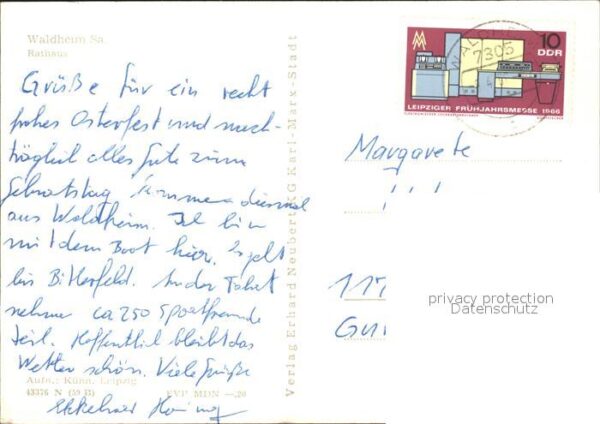 Waldheim Sa.
Rathaus
Grüße für ein recht
frohes Osterfest und nach-
träglich alles Gute zum
Geburtstag kommen diesmal
aus Waldheim. Ich bin
mit dem Boot hier. Es geht
bis Bitterfeld. An der Fahrt
nehmen ca 250 Sportfreunde
teil. Hoffentlich bleibt das
Wetter schön. Viele Grüße
Aufn.: Künn, Leipzig
43376 N (59 B) EVP MDN —,20
Ekkehard
Verlag Erhard Neubert KG Karl-Marx-Stadt
10
DDR
LEIPZIGER FRÜHJAHRSMESSE 1966
WALDHEIM
7305
Margarete
117
privacy protection
Datenschutz